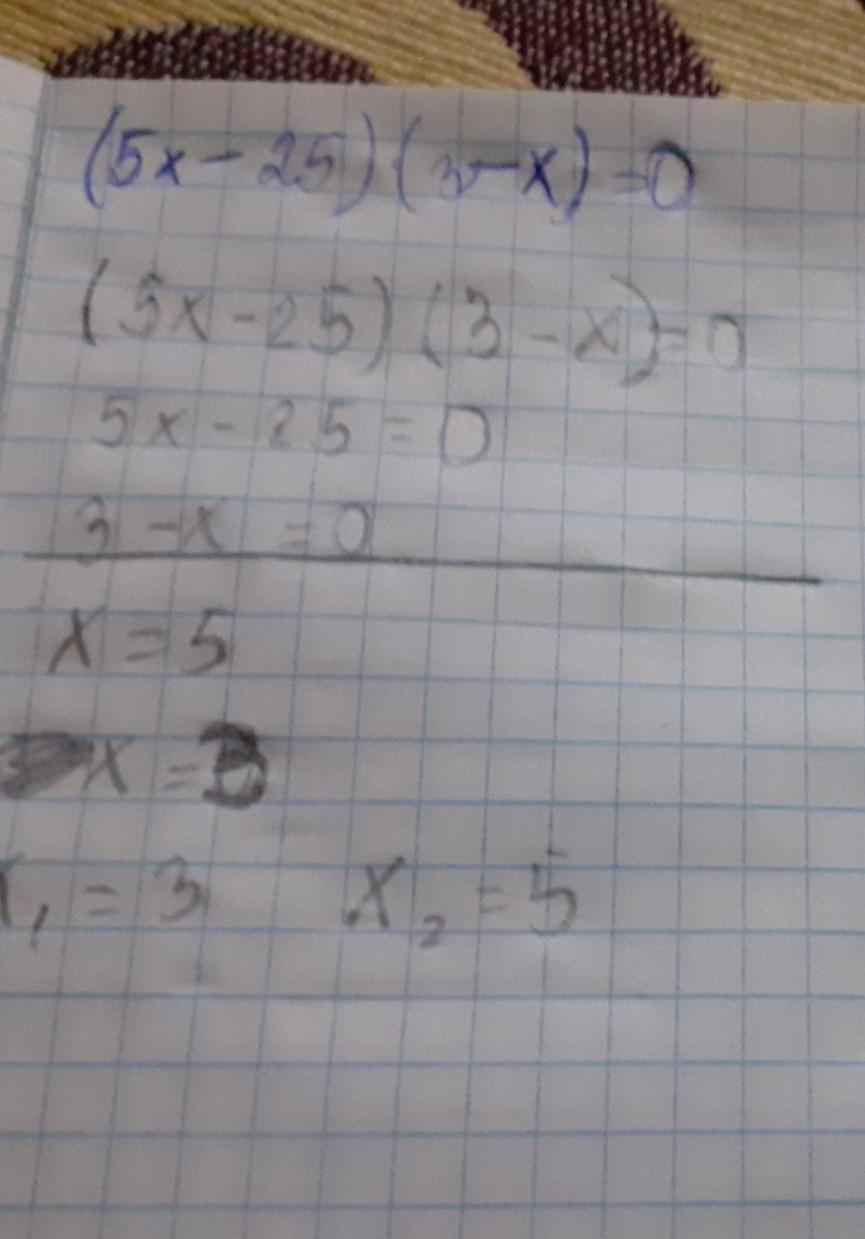 (5x-25)(3-x)=0
(5x-25)(3-x)=0
5x-25=0
3-x=0
x=5
x=3
x₁=3 x₂=5